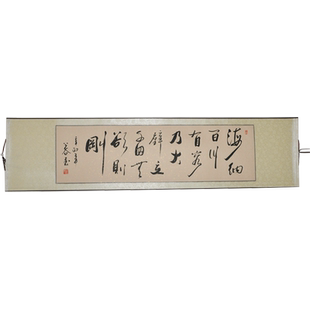 海納
百川
有容
乃大
壁立
千仞无
欲則
剛